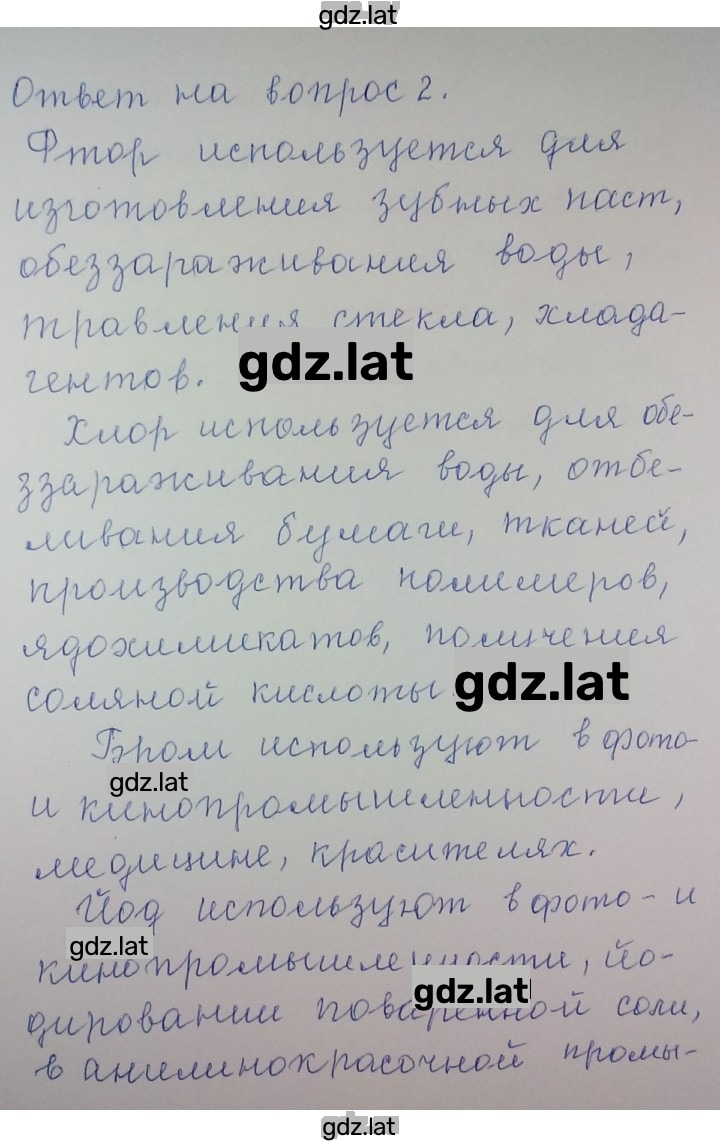 gdz.lat
Ответ на вопрос 2.
Фтор используется для
изготовления зубных паст,
обеззараживания воды,
травления стекла, хлада-
гентов. gdz.lat
Хлор используется для обе-
ззараживания воды, отбе-
ливания бумаги, тканей,
производства полимеров,
ядохимикатов, получения
соляной кислоты gdz.lat
Бром используют в фото-
gdz.lat
и кинопромышленности,
медицине, красителях.
Йод используют в фото- и
gdz.lat
кинопромышленности, йо-
gdz.lat
дировании поваренной соли,
в анилинокрасочной промы-
gdz.lat